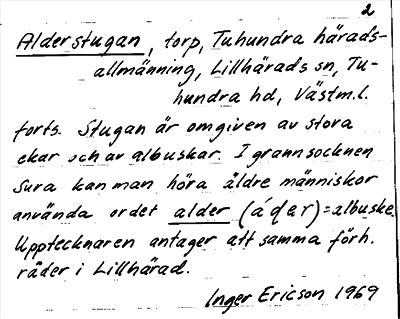 2
Alderstugan, torp, Tuhundra härads-
allmänning, Lillhärads sn, Tu-
hundra hd, Västm.l.
forts. Stugan är omgiven av stora
ekar och av albuskar. I grannsocknen
Sura kan man höra äldre människor
använda ordet alder (áɖar) = albuske.
Upptecknaren antager att samma förh.
råder i Lillhärad.
Inger Ericson 1969